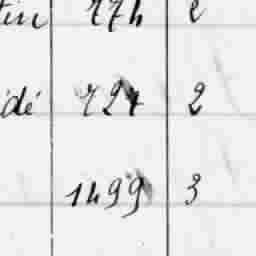 tin 774 2
idé 724 2
1499 3